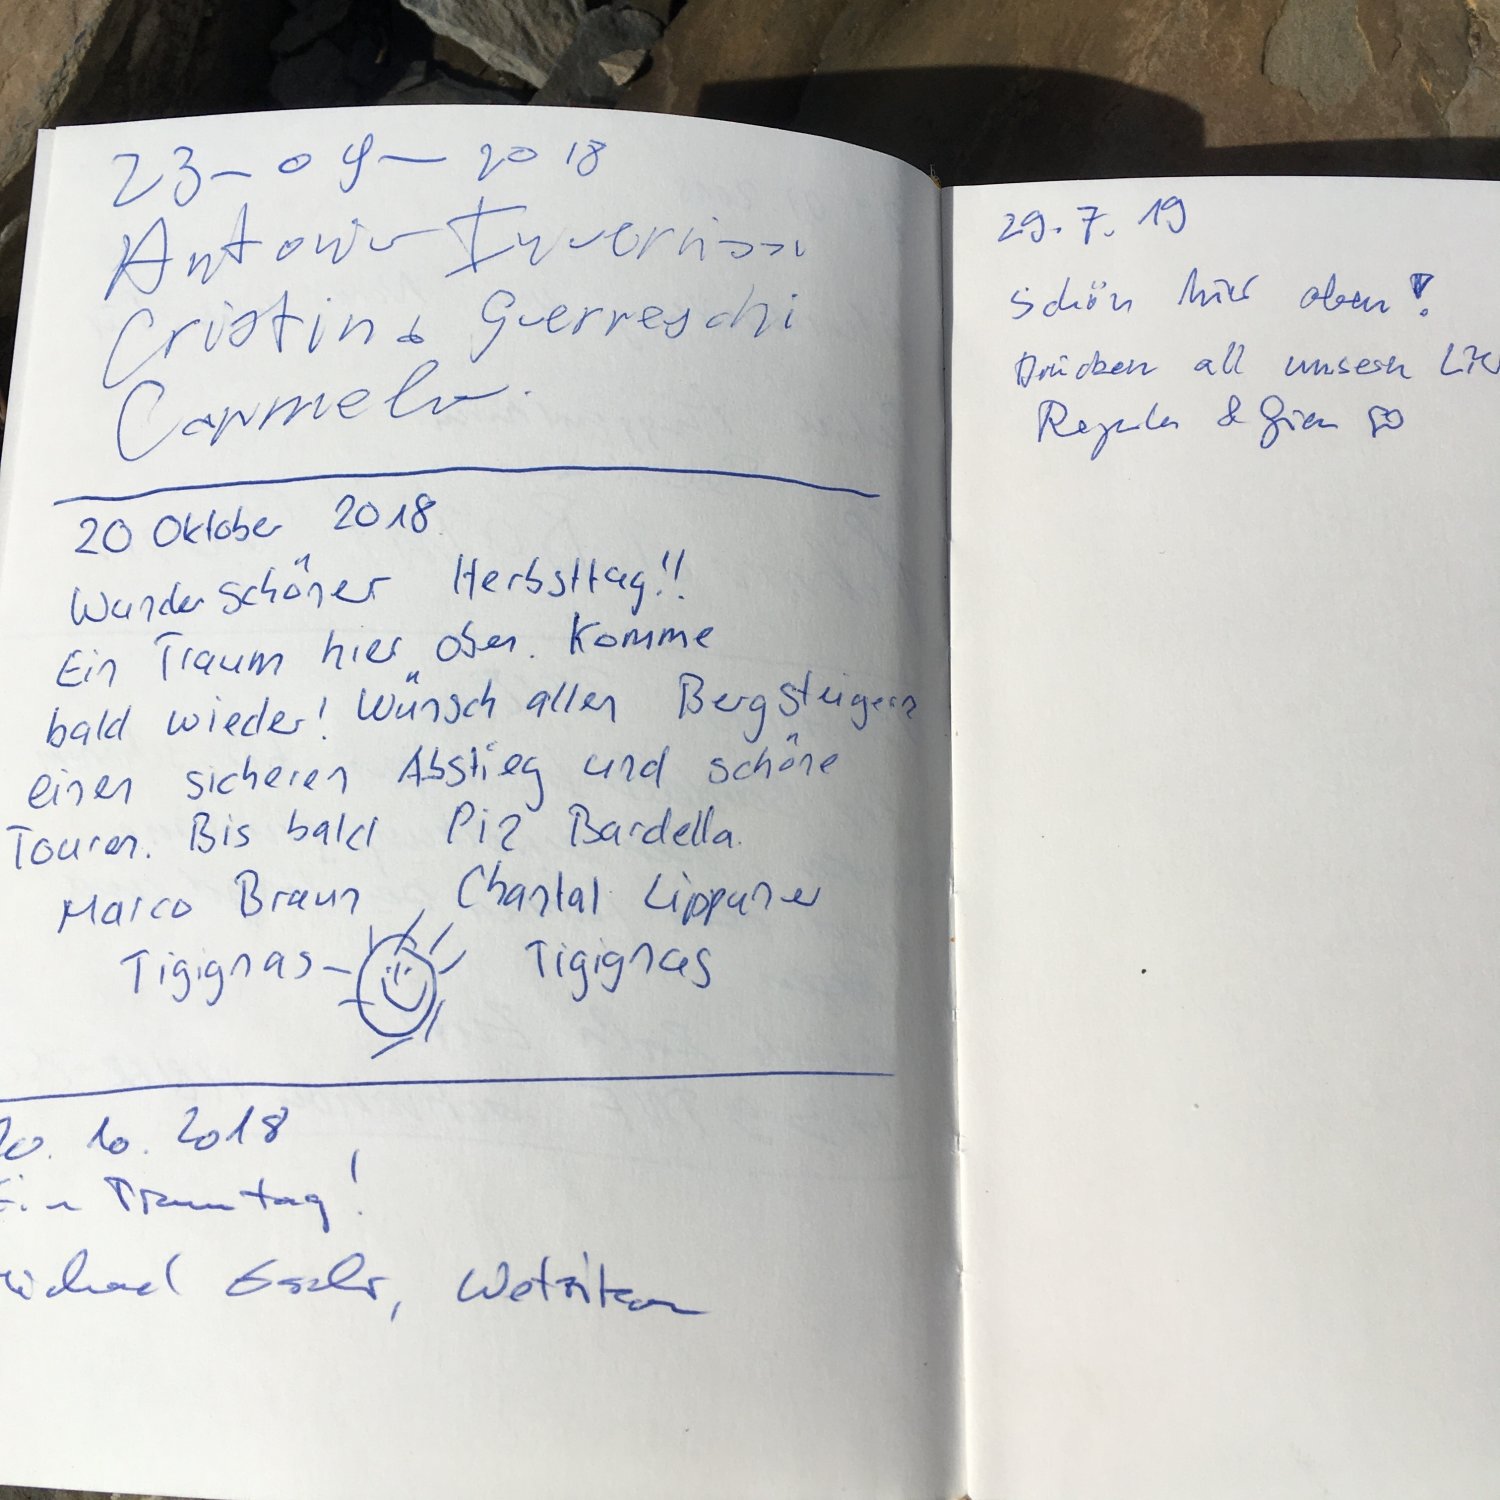 23-09-2018
Antonio Invernizzi
Cristina Guerreschi
Carmelo.
20 Oktober 2018
Wunderschöner Herbsttag!!
Ein Traum hier oben. Komme
bald wieder! Wünsch allen Bergsteigern
einen sicheren Abstieg und schöne
Touren. Bis bald Piz Bardella.
Marco Braun Chantal Lippuner
Tigignas Tigignas
20. 10. 2018
Ein Traumtag!
Michael Wetzikon
29.7.19
Schön hier oben!
Drücken all unsern
Regula &